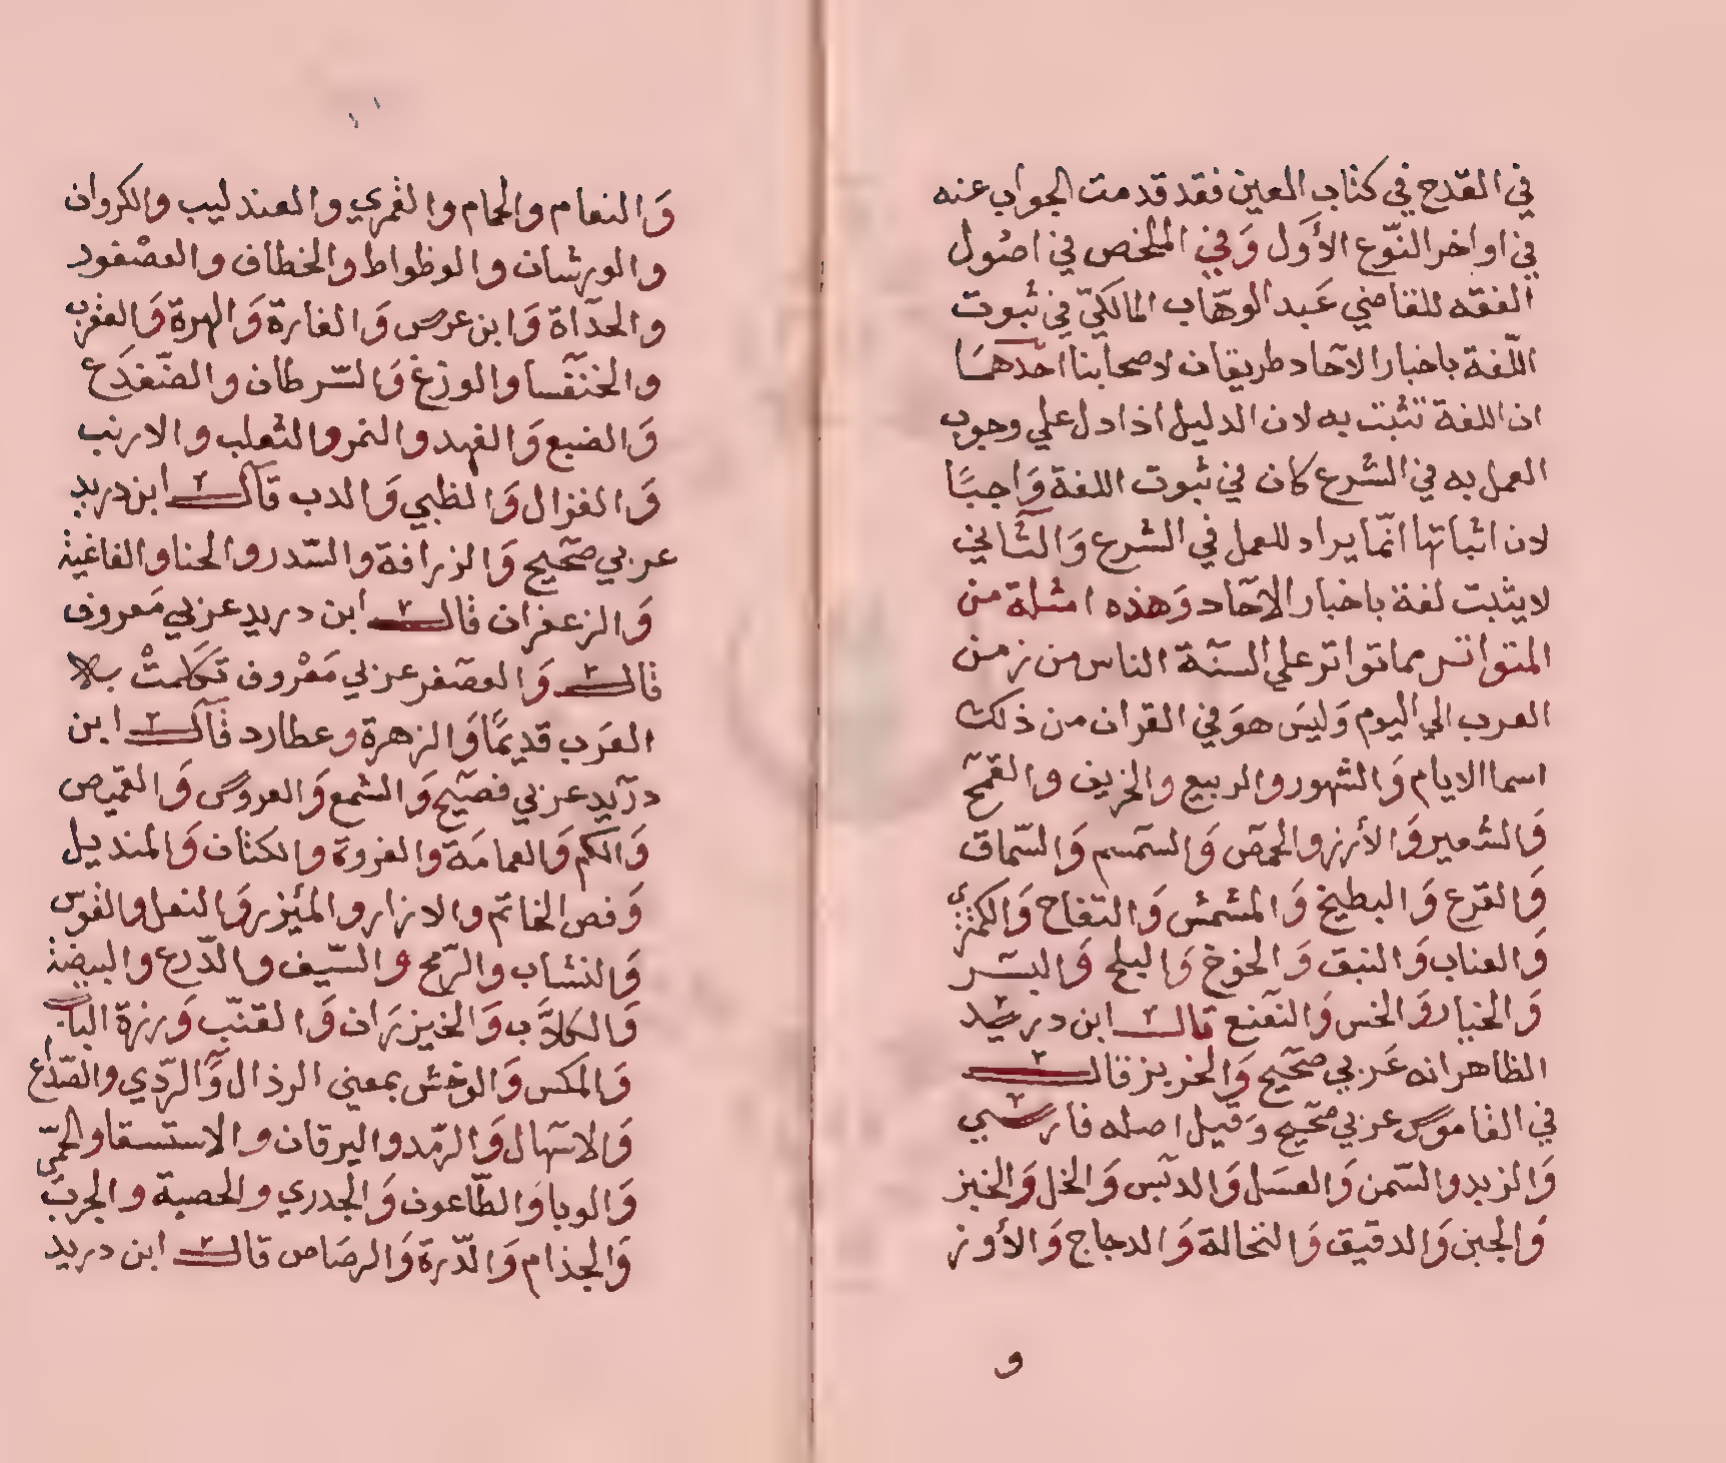 في القدح في كتاب العين فقد قدمت الجواب عنه
في اواخر النّوع الأَول وَفي الملخص في اصُول
الفقه للقاضي عَبد الوهّاب المالكيّ في ثبوت
اللّغة باخبار الآحاد طريقان لاصحابنا احَدهمَا
ان اللغة تثبت به لان الدليل اذا دل علي وجوب
العمل به في الشرع كان في ثبوت اللغة وَاجبًا
لان اثباتها انّما يراد للعمل في الشرع وَالثَّاني
لا يثبت لغة باخبار الآحاد وَهذه امثلة من
المتواتر مما تواتر علي السنَة الناس من زمن
العرب الي اليوم وَليسَ هوَ في القران من ذلك
اسما الايام وَالشهور والربيع والخريف والقمح
وَالشعير وَالأرز والحمص وَالسمسم وَالسّماق
وَالقرع وَالبطيخ وَالمشمش وَالتفاح وَالكمثري
وَالعناب وَالنبق وَالخوخ وَالبلح وَالبسر
وَالخيار وَالخس وَالنعنع قال ابن دريد
الظاهر انه عَربي صحيح وَالخربز قال
في القاموس عربي صحيح وَقيل اصله فارسي
وَالزبد والسّمن وَالعسَل وَالدبس وَالخل وَالخبز
وَالجبن وَالدقيق وَالنخالة وَالدجاج وَالأوز
و
وَالنعام والحمام والقمري والعندليب والكروان
والورشان والوطواط والخطاف والعصْفور
والحدّاة وَابن عرس وَالفارة وَالهرة وَالعقرب
والخنَفسا والوزغ وَالسّرطان والضّفدَع
وَالضبع وَالفهد والنمر والثعلب والارنب
وَالغزال وَالظبي وَالدب قال ابن دريد
عربي صحيح وَالزرافة والسّدر والحنا والفاغية
وَالزعفران قال ابن دريد عربي مَعروف
قال وَالعصفر عربي مَعْروف تكَلمتْ به
العرَب قديمًا وَالزهرة وعطارد قال ابن
دريد عربي فصيح وَالشمع وَالعروس وَالقميص
وَالكم وَالعمامَة والفروة والكتان وَالمنديل
وَفص الخاتم والازار والمئزر وَالنعل والقوس
وَالنشاب والرّمح والسّيف والدّرع والبيضة
وَالكلاَّب وَالخيزرَان وَالقنّب وَرزة الباب
وَالمكس وَالوخش بمعني الرذال وَالرّدي والصّدَاع
وَالاسهال وَالرمّد واليرقان والاستسقا والحمّى
وَالوبا وَالطّاعون وَالجدري والحصبة والجربَ
وَالجذام وَالدّرة وَالرصَاص قال ابن دريد